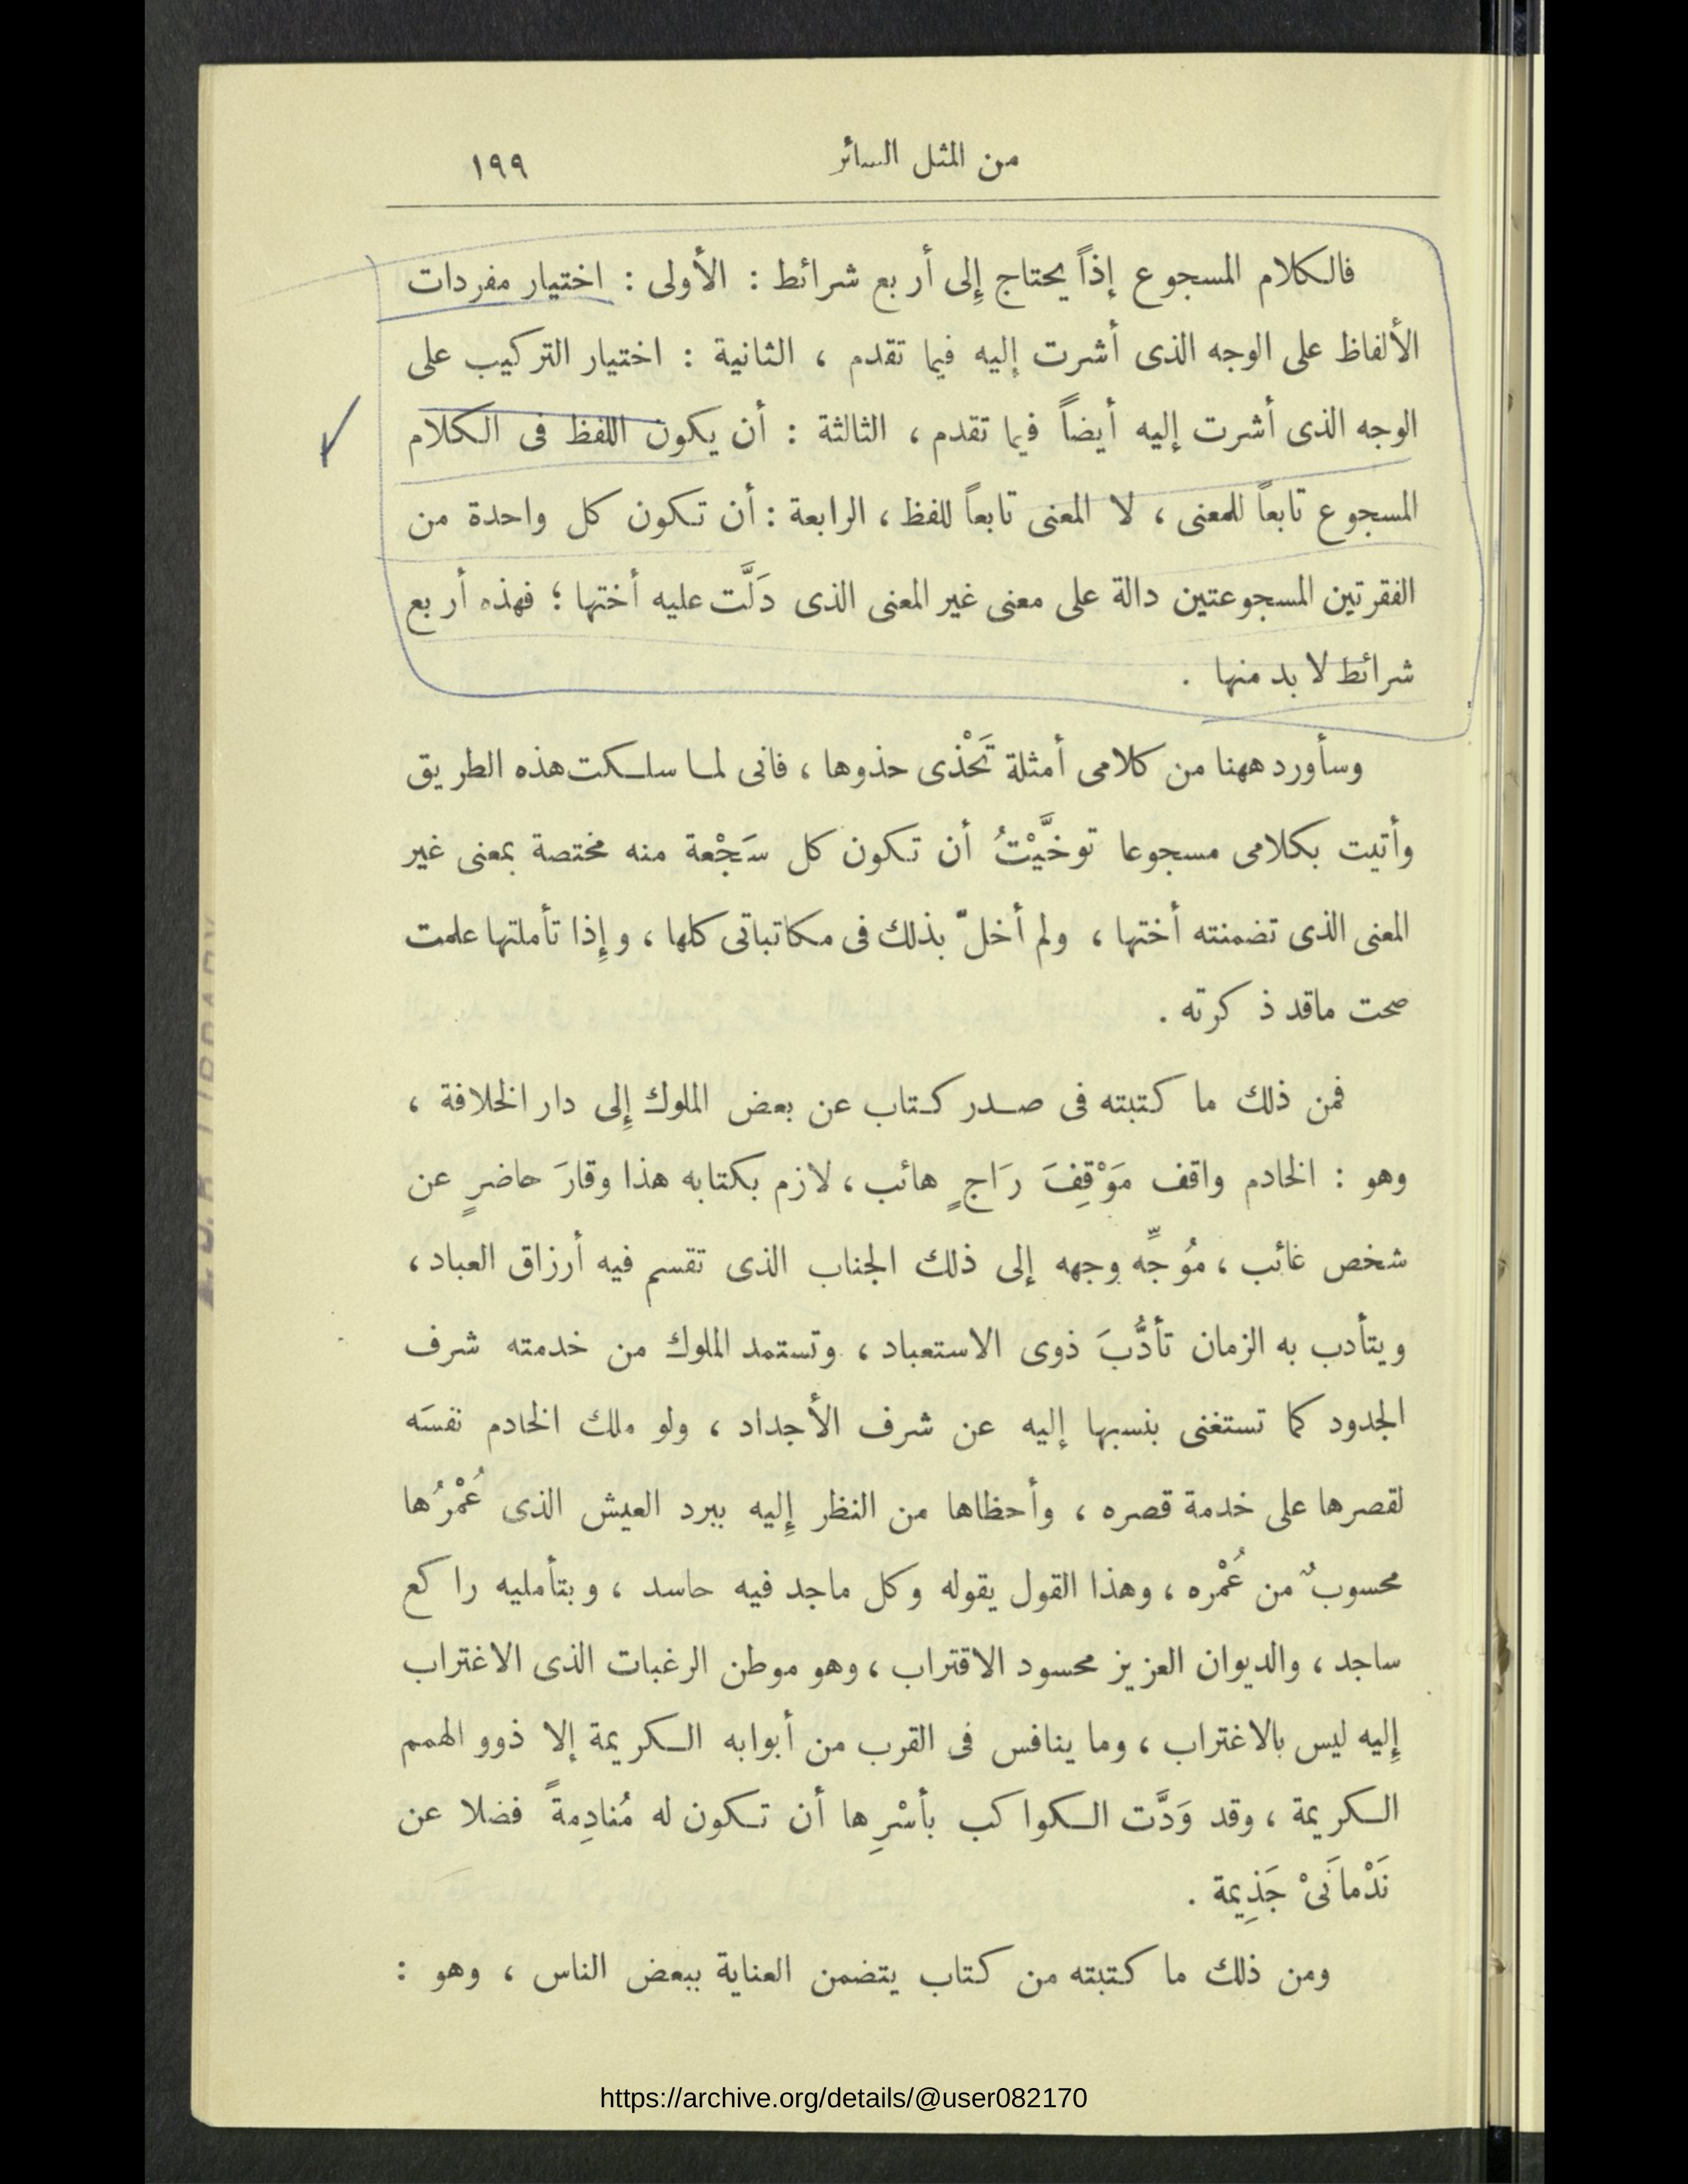 من المثل السائر ١٩٩
فالكلام المسجوع إذاً يحتاج إِلى أربع شرائط : الأولى : اختيار مفردات
الألفاظ على الوجه الذى أشرت إليه فيما تقدم ، الثانية : اختيار التركيب على
الوجه الذى أشرت إليه أيضاً فيما تقدم ، الثالثة : أن يكون اللفظ فى الكلام
المسجوع تابعاً للمعنى ، لا المعنى تابعاً للفظ ، الرابعة : أن تكون كل واحدة من
الفقرتين المسجوعتين دالة على معنى غير المعنى الذى دَلَّت عليه أختها ؛ فهذه أربع
شرائط لا بد منها .
وسأورد ههنا من كلامى أمثلة تَحْذى حذوها ، فانى لما سلكت هذه الطريق
وأتيت بكلامى مسجوعا توخَّيْتُ أن تكون كل سَجْعة منه مختصة بمعنى غير
المعنى الذى تضمنته أختها ، ولم أخلّ بذلك فى مكاتباتى كلها ، وإِذا تأملتها علمت
صحت ماقد ذكرته .
فمن ذلك ما كتبته فى صدر كتاب عن بعض الملوك إِلى دار الخلافة ،
وهو : الخادم واقف مَوْقِفَ رَاجٍ هائب ، لازم بكتابه هذا وقارَ حاضرٍ عن
شخص غائب ، مُوجِّه وجهه إلى ذلك الجناب الذى تقسم فيه أرزاق العباد ،
ويتأدب به الزمان تأدُّبَ ذوى الاستعباد ، وتستمد الملوك من خدمته شرف
الجدود كما تستغنى بنسبها إليه عن شرف الأجداد ، ولو ملك الخادم نفسَه
لقصرها على خدمة قصره ، وأحظاها من النظر إِليه ببرد العيش الذى عُمْرُها
محسوبٌ من عُمْره ، وهذا القول يقوله وكل ماجد فيه حاسد ، وبتأمليه راكع
ساجد ، والديوان العزيز محسود الاقتراب ، وهو موطن الرغبات الذى الاغتراب
إِليه ليس بالاغتراب ، وما ينافس فى القرب من أبوابه الكريمة إلا ذوو الهمم
الكريمة ، وقد وَدَّت الكواكب بأسْرِها أن تكون له مُنادِمةً فضلا عن
نَدْمانَىْ جَذِيمة .
ومن ذلك ما كتبته من كتاب يتضمن العناية ببعض الناس ، وهو :
https://archive.org/details/@user082170